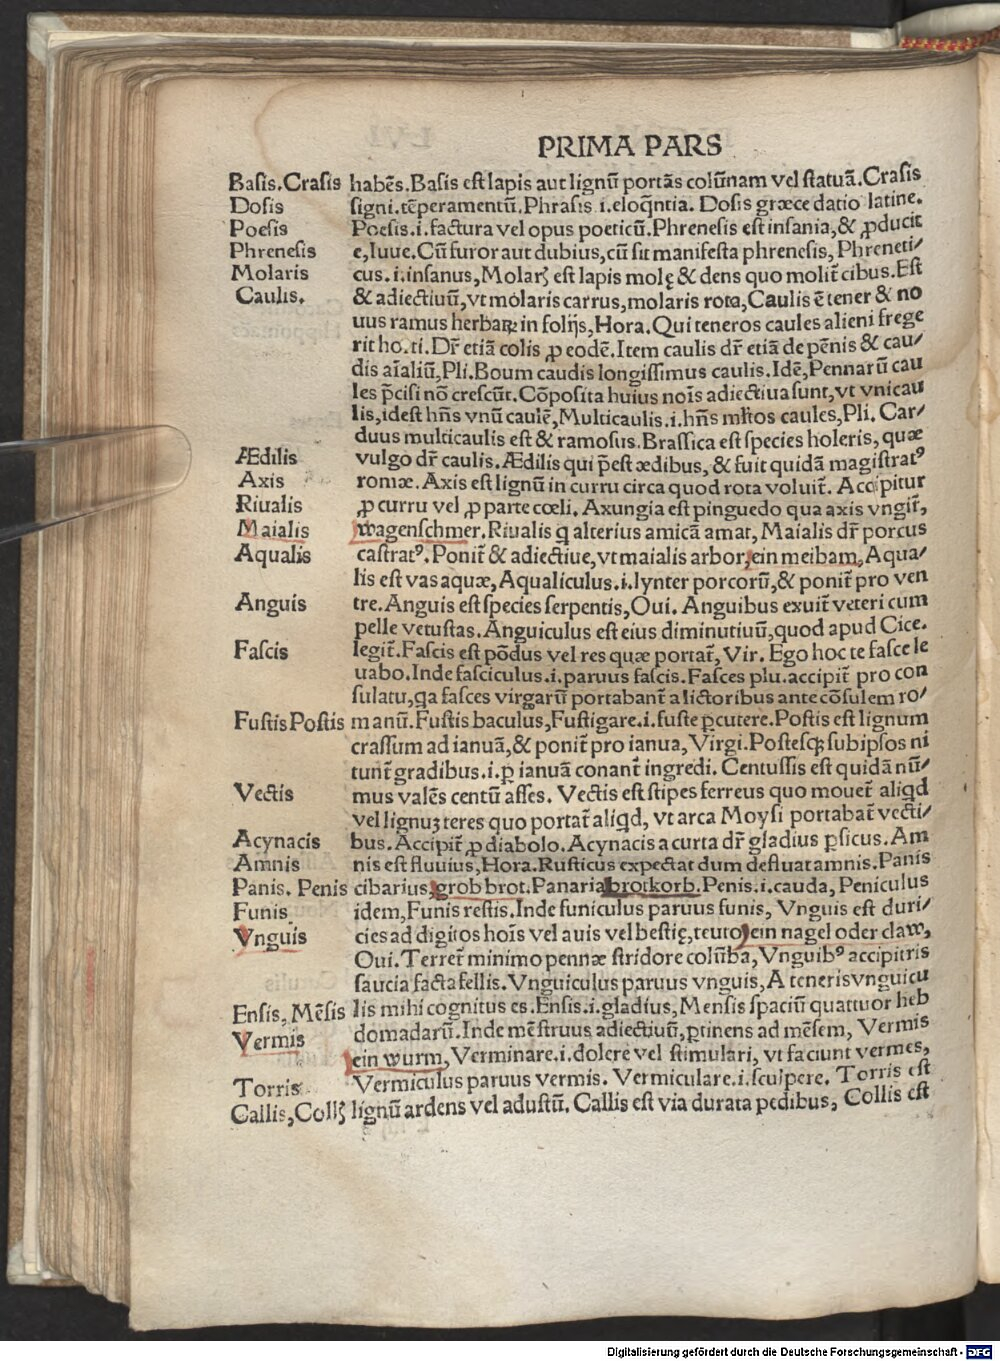 PRIMA PARS
Basis. Crasis habēs. Basis est lapis aut lignū portās colūnam vel statuā. Crasis
Dosis signi. tēperamentū. Phrasis .i. eloq̄ntia. Dosis græce datio latine.
Poesis Poesis .i. factura vel opus poeticū. Phrenesis est insania, & ꝓducit
Phrenesis e, Iuue. Cū furor aut dubius, cū sit manifesta phrenesis, Phreneti/
Molaris cus .i. insanus, Molarꝭ est lapis molę & dens quo molit̄ cibus. Est
Caulis. & adiectiuū, vt molaris carrus, molaris rota, Caulis ē tener & no
uus ramus herbaꝝ in folijs, Hora. Qui teneros caules alieni frege
rit ho. ti. Dr̄ etiā colis ꝓ eodē. Item caulis dr̄ etiā de pēnis & cau/
dis aīaliū, Pli. Boum caudis longissimus caulis. Idē, Pennarū cau
les p̄cisi nō crescūt. Cōposita huius noīs adiectiua sunt, vt vnicau
lis, idest hn̄s vnū caulē, Multicaulis .i. hn̄s ml̄tos caules, Pli. Car/
duus multicaulis est & ramosus. Brassica est species holeris, quæ
Ædilis vulgo dr̄ caulis. Ædilis qui p̄est ædibus, & fuit quidā magistratꝰ
Axis romæ. Axis est lignū in curru circa quod rota voluit̄. Accipitur
Riualis ꝓ curru vel ꝓ parte cœli. Axungia est pinguedo qua axis vngit̄,
Maialis wagenschmer. Riualis q alterius amicā amat, Maialis dr̄ porcus
Aqualis castratꝰ. Ponit̄ & adiectiue, vt maialis arbor, ein meibam, Aqua/
lis est vas aquæ, Aqualiculus .i. lynter porcorū, & ponit̄ pro ven
Anguis tre. Anguis est species serpentis, Oui. Anguibus exuit̄ veteri cum
pelle vetustas. Anguiculus est eius diminutiuū, quod apud Cice.
Fascis legit̄. Fascis est pōdus vel res quæ portat̄, Vir. Ego hoc te fasce le
uabo. Inde fasciculus .i. paruus fascis. Fasces plu. accipit̄ pro con
sulatu, qa fasces virgarū portabant̄ a lictoribus ante cōsulem ro/
Fustis Postis manū. Fustis baculus, Fustigare .i. fuste ꝑcutere. Postis est lignum
crassum ad ianuā, & ponit̄ pro ianua, Virgi. Postesqꝫ sub ipsos ni
tunt̄ gradibus .i. ꝑ ianuā conant̄ ingredi. Centussis est quidā nū/
Vectis mus valēs centū asses. Vectis est stipes ferreus quo mouet̄ aliqd
vel lignuꝫ teres quo portat̄ aliqd, vt arca Moysi portabat̄ vecti/
Acynacis bus. Accipit̄ ꝓ diabolo. Acynacis a curta dr̄ gladius ꝑsicus. Am
Amnis nis est fluuius, Hora. Rusticus expectat dum defluat amnis. Panis
Panis. Penis cibarius, grob brot. Panaria brotkorb. Penis .i. cauda, Peniculus
Funis idem, Funis restis. Inde funiculus paruus funis, Vnguis est duri/
Vnguis cies ad digitos hoīs vel auis vel bestię, teuto, ein nagel oder claw,
Oui. Terret̄ minimo pennæ stridore colūba, Vnguibꝰ accipitris
saucia facta fellis. Vnguiculus paruus vnguis, A teneris vnguicu
Ensis, Mēsis lis mihi cognitus es. Ensis .i. gladius, Mensis spaciū quattuor heb
Vermis domadarū. Inde mēstruus adiectiuū, ꝑtinens ad mēsem, Vermis
ein wurm, Verminare .i. dolere vel stimulari, vt faciunt vermes,
Torris Vermiculus paruus vermis. Vermiculare .i. sculpere. Torris est
Callis, Collꝭ lignū ardens vel adustū. Callis est via durata pedibus, Collis est
Digitalisierung gefördert durch die Deutsche Forschungsgemeinschaft - DFG